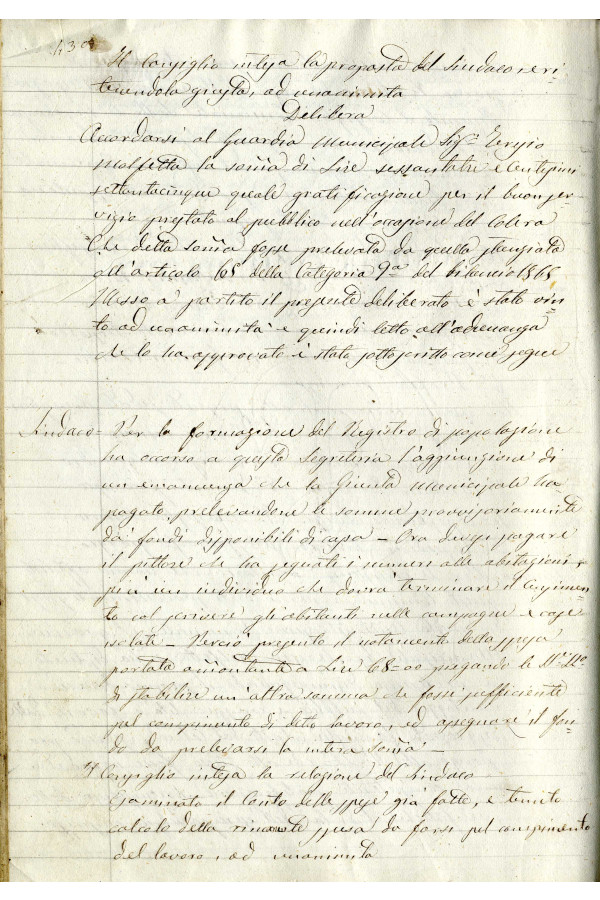 Il Consiglio intesa la proposta del Sindaco e ri-
tenendola giusta, ad unanimità
Delibera
Accordarsi al Guardia Municipale Sigr. Sergio
Molfetta la somma di Lire sessantatre e Centesimi
settantacinque quale gratificazione per il buon ser-
vizio prestato al pubblico nell'occasione del Colera
Che detta somma fosse prelevata da quella stanziata
all'articolo 68 della Categoria 9a del bilancio 1868
Messo a partito il presente deliberato è stato vin-
to ad unanimità e quindi letto all'adunanza
che lo ha approvato è stato sottoscritto come segue
Sindaco = Per la formazione del Registro di popolazione
ha occorso a questa Segreteria l'aggiunzione di
un che la Giunta Municipale ha
pagato prelevandone le somme provvisoriamente
da' fondi disponibili di cassa - Ora devesi pagare
il pittore che ha segnati i numeri alle abitazioni e
più un individuo che dovrà terminare il Censimen-
to col scrivere gli abitanti nelle campagne e case
isolate - Perciò presento il notamento della spesa
portata ammontante a Lire 68=00 pregando le
di stabilire un'altra somma che fosse sufficiente
pel compimento di detto lavoro, ed assegnare il fon-
do da prelevarsi la intera somma -
Il Consiglio intesa la relazione del Sindaco
Esaminato il Conto delle spese già fatte, e tenuto
calcolo della rimanente spesa da farsi pel compimento
del lavoro, ad unanimità